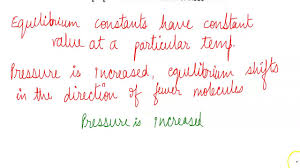 Equilibrium constants have constant
value at a particular temp.
Pressure is increased, equilibrium shifts
in the direction of fewer molecules
Pressure is increased